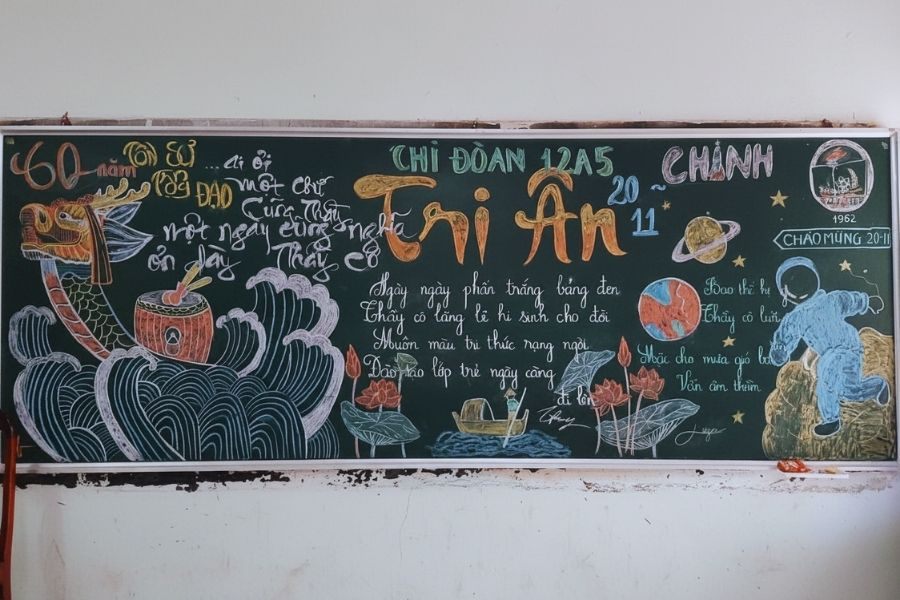 60 năm TÔN SƯ
TRỌNG ĐẠO
... ai ơi
một chữ
Cũng Thầy
một ngày cũng nghĩa
ơn dày Thầy Cô
CHI ĐOÀN 12A5
Tri Ân
20 ~ 11
Ngày ngày phấn trắng bảng đen
Thầy cô lặng lẽ hi sinh cho đời
Muôn màu tri thức rạng ngời
lớp trẻ ngày càng
đi lên
CHÁNH
1962
CHÀO MỪNG 20-11
Bao thế hệ
Thầy cô
Mặc cho mưa gió
Vẫn âm thầm